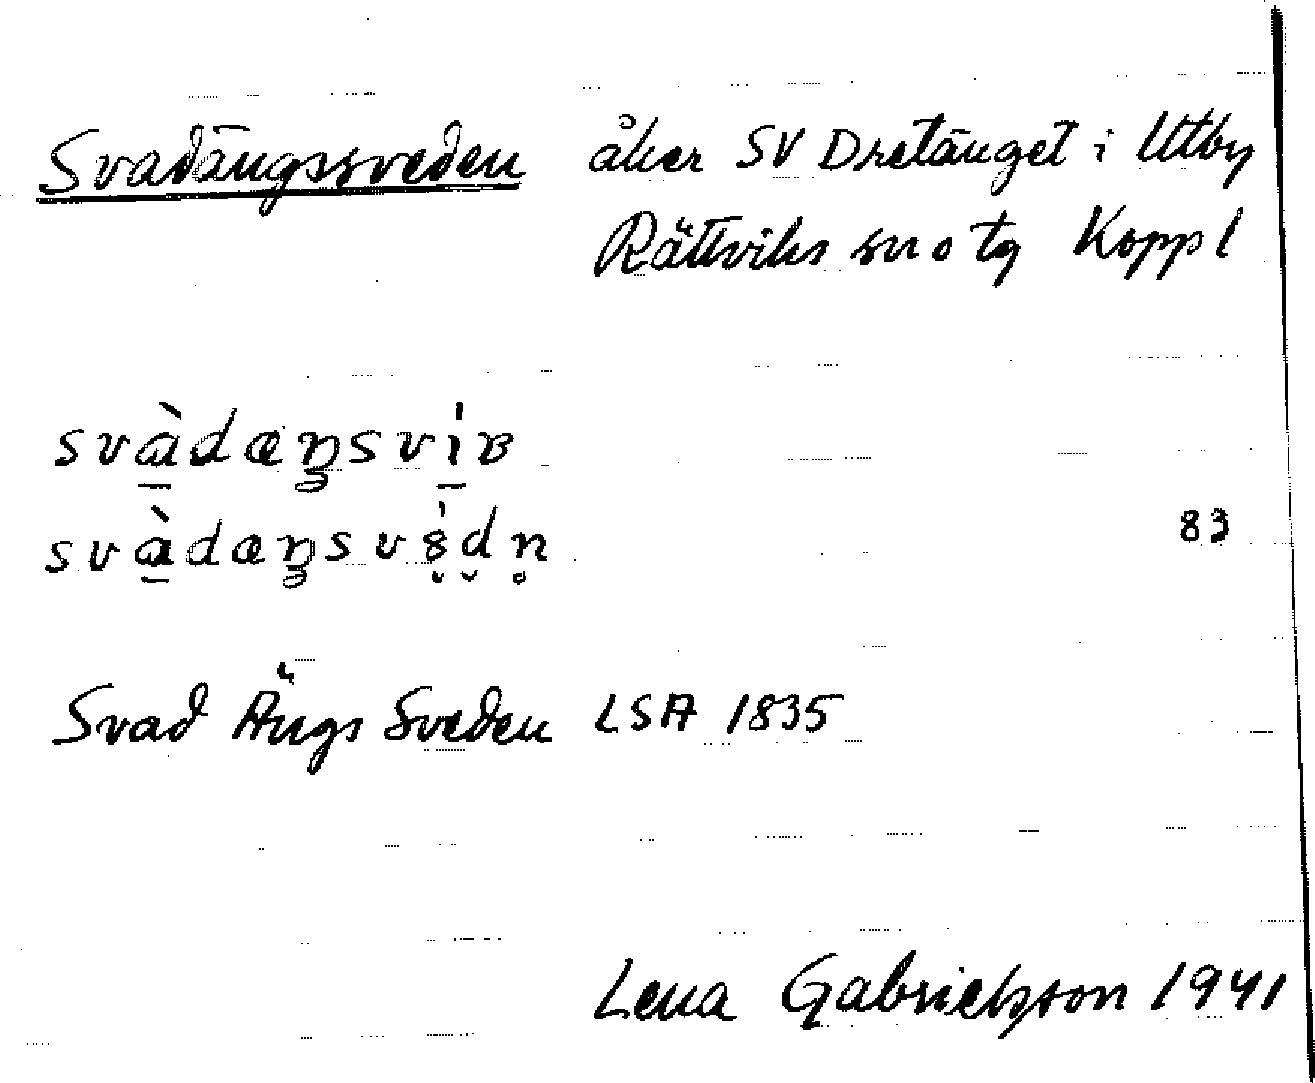 Svadängssveden åker SV Dretänget i Utby
Rättviks sn o tg Kopp l
svàdæŋsvi̍ʙ
svàdæŋsvẹdn̥
83
Svad Ängs Sveden LSA 1835
Lena Gabrielsson 1941